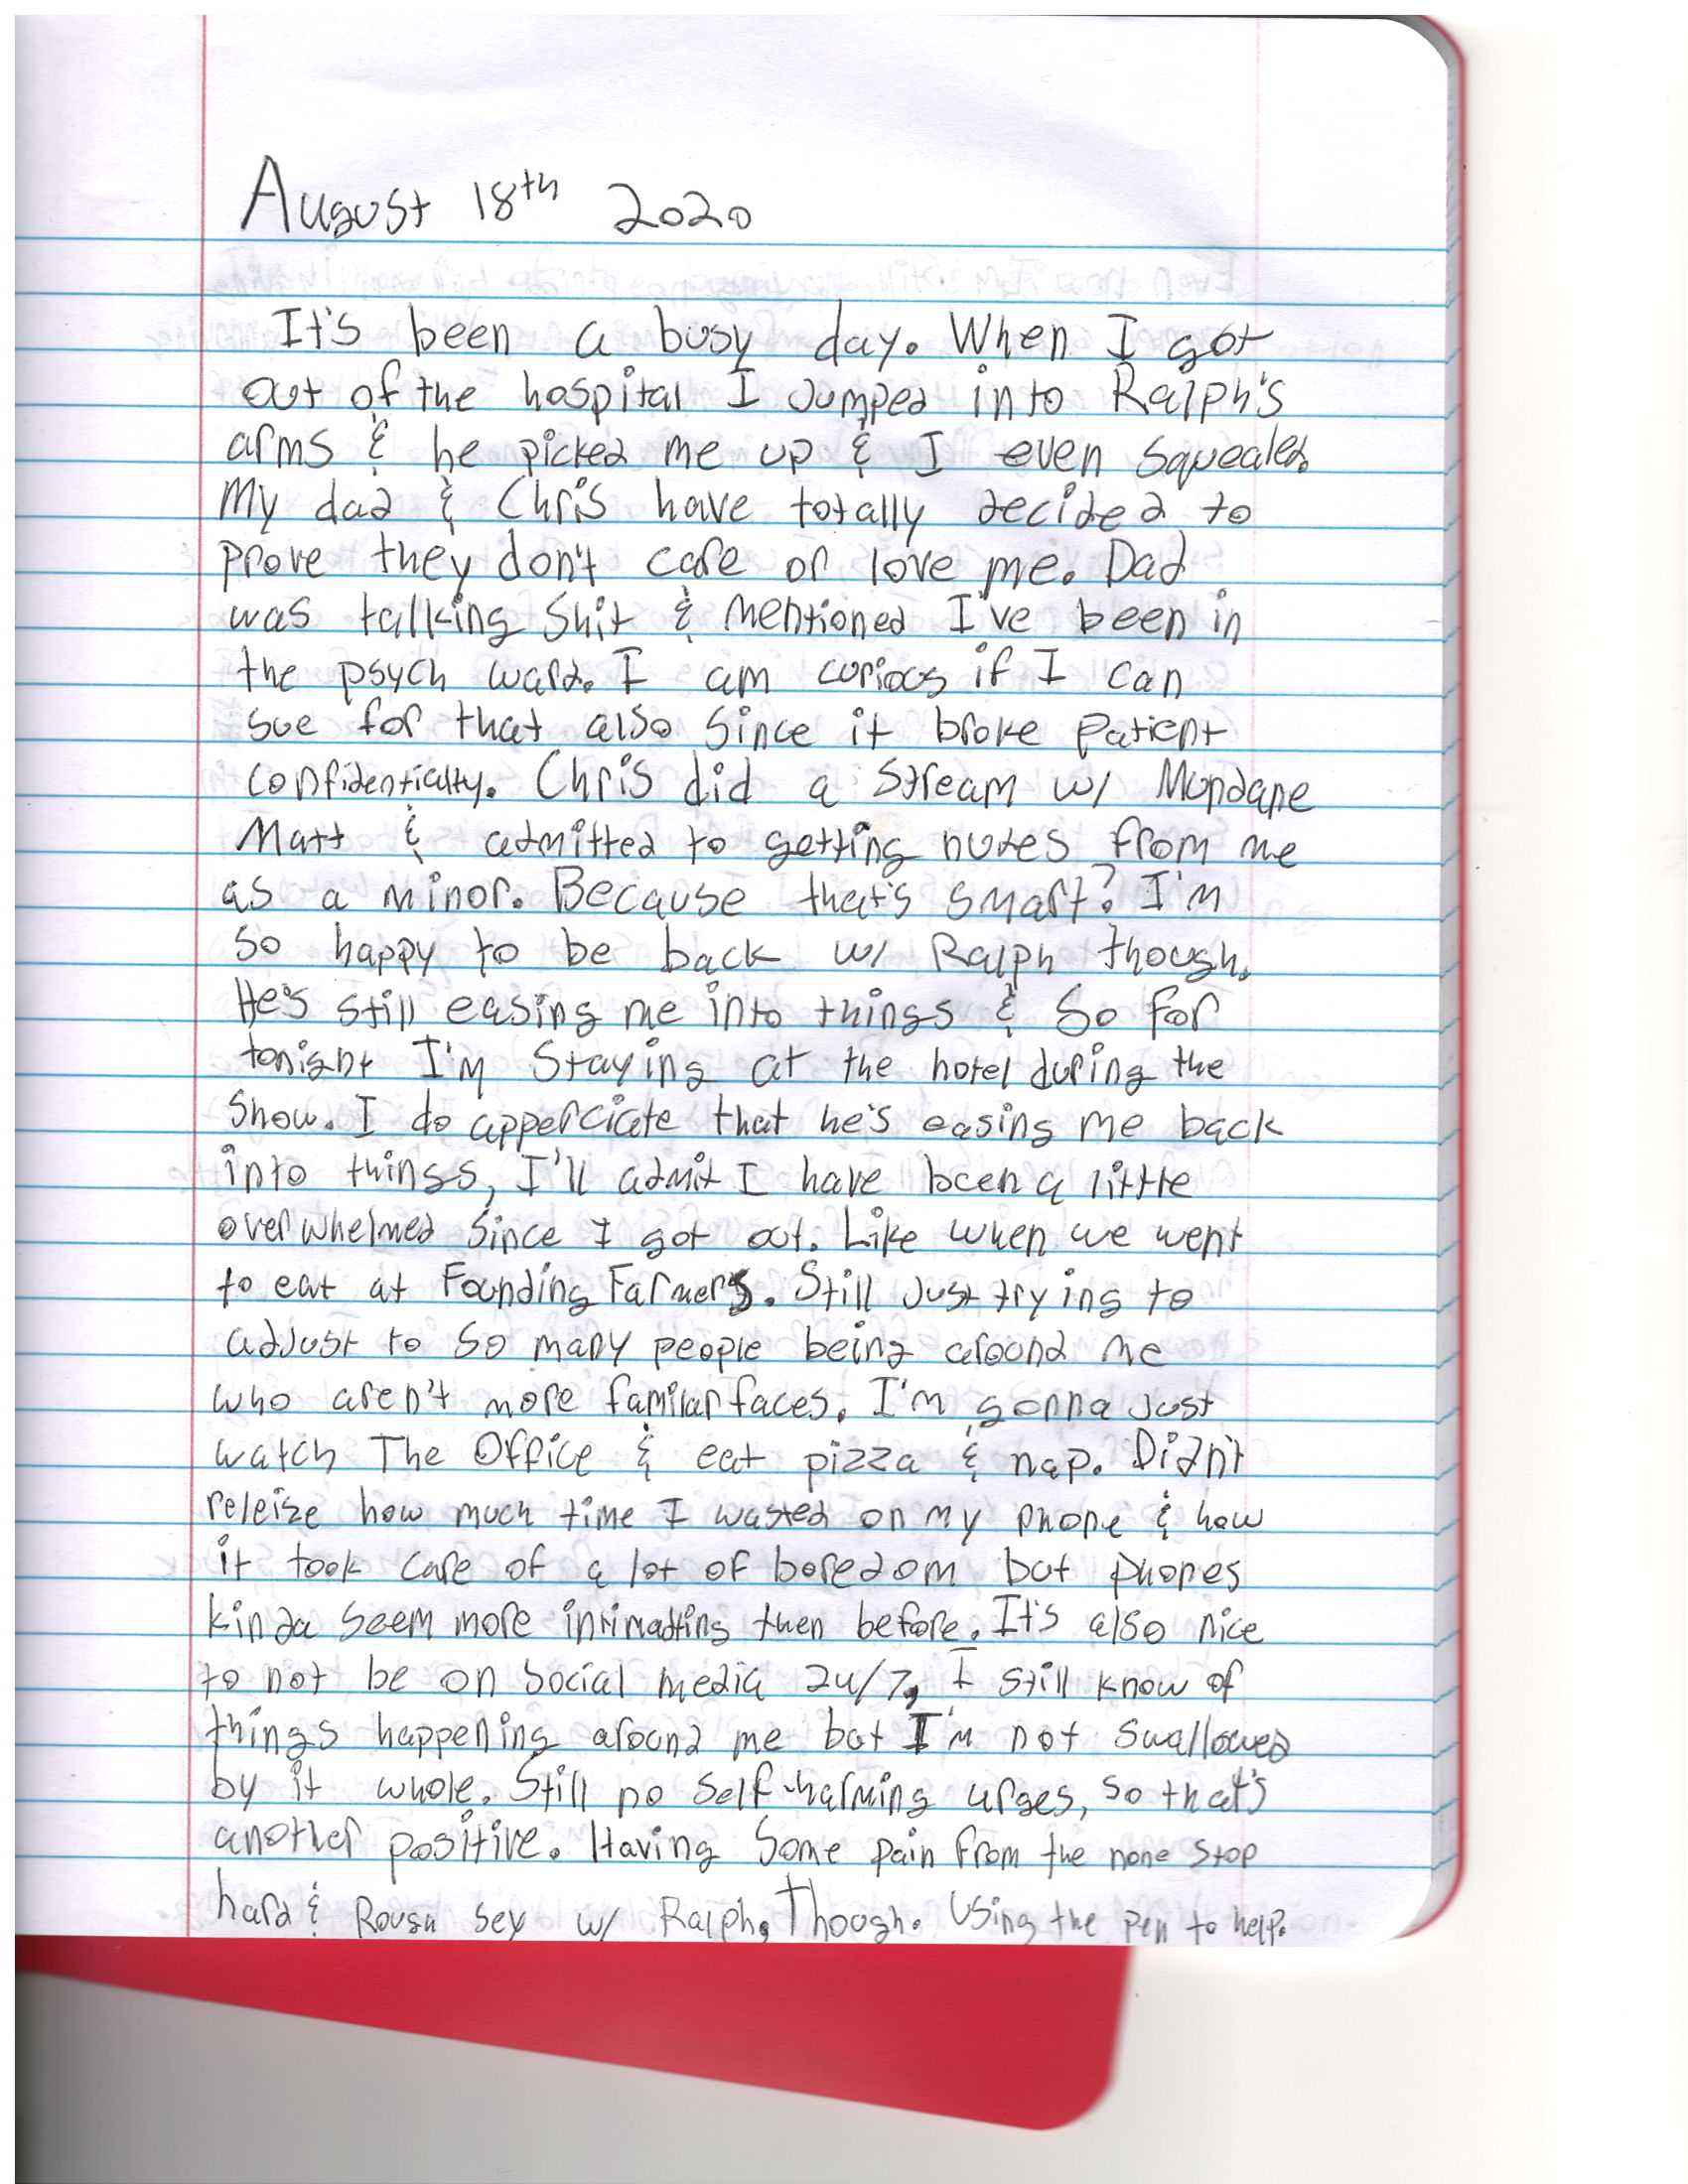 August 18th 2020
It's been a busy day. When I got
out of the hospital I Jumped into Ralph's
arms & he picked me up & I even squealed.
My dad & Chris have totally decided to
prove they don't care or love me. Dad
was talking shit & mentioned I've been in
the psych ward. I am curious if I can
sue for that also since it broke patient
confidentialty. Chris did a stream w/ Mundane
Matt & admitted to getting nudes from me
as a minor. Because that's smart? I'm
so happy to be back w/ Ralph though.
He's still easing me into things & so for
tonight I'm staying at the hotel during the
show. I do apperciate that he's easing me back
into things, I'll admit I have been a little
overwhelmed since I got out. Like when we went
to eat at Founding Farmers. Still Just trying to
adjust to so many people being around me
who aren't more familar faces. I'm gonna Just
watch The Office & eat pizza & nap. Didn't
releize how much time I wasted on my phone & how
it took care of a lot of boredom but phones
kinda seem more intimadting then before. It's also nice
to not be on social media 24/7, I still know of
things happening around me but I'm not swallowed
by it whole. Still no self-harming urges, so that's
another positive. Having some pain from the none stop
hard & Rough sex w/ Ralph, Though. Using the pen to help.